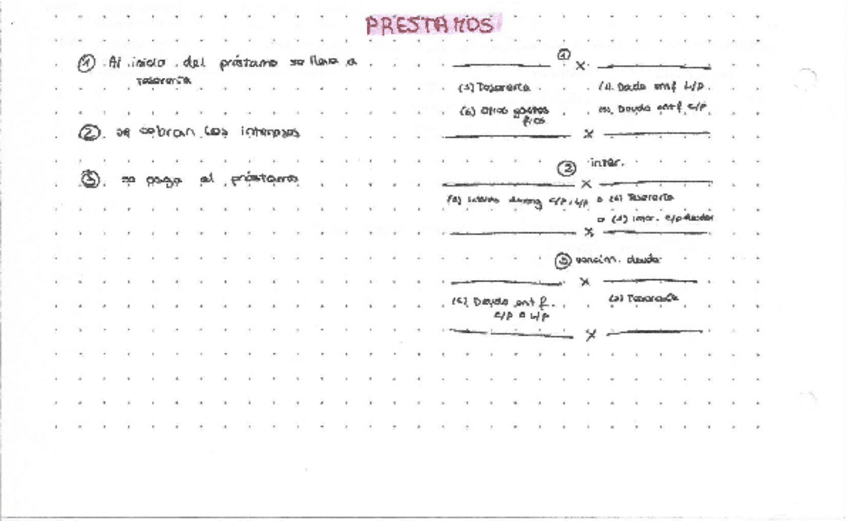 PRESTAMOS
① Al inicio del préstamo se lleva a
Tesorería
② se cobran los intereses
③ se paga el préstamo
①
x
(5) Tesorería
(1) Deuda ent f L/p.
(6) Otros gastos
fros
(5) Deuda ent f. c/p.
x
② inter.
x
(6) c/p, L/p a (5) Tesorería
a (5) inter. c/p deudas
x
③ vencim. deuda
x
(5) Deuda ent f.
c/p a L/p
(5) Tesorería
x